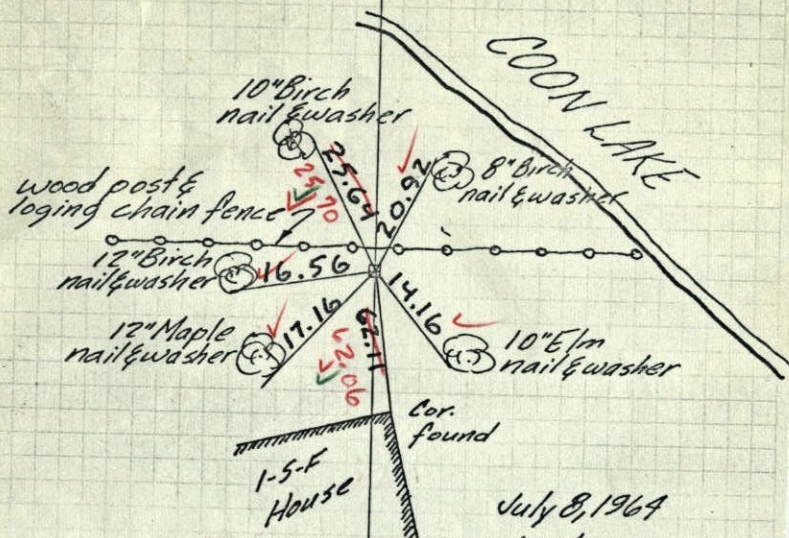 COON LAKE
10" Birch
nail & washer
25.64
25.70
20.92
8" Birch
nail & washer
wood post &
loging chain fence
12" Birch
nail & washer
16.56
14.16
12" Maple
nail & washer
17.16
62.11
62.06
10" Elm
nail & washer
Cor.
found
1-S-F
House
July 8, 1964